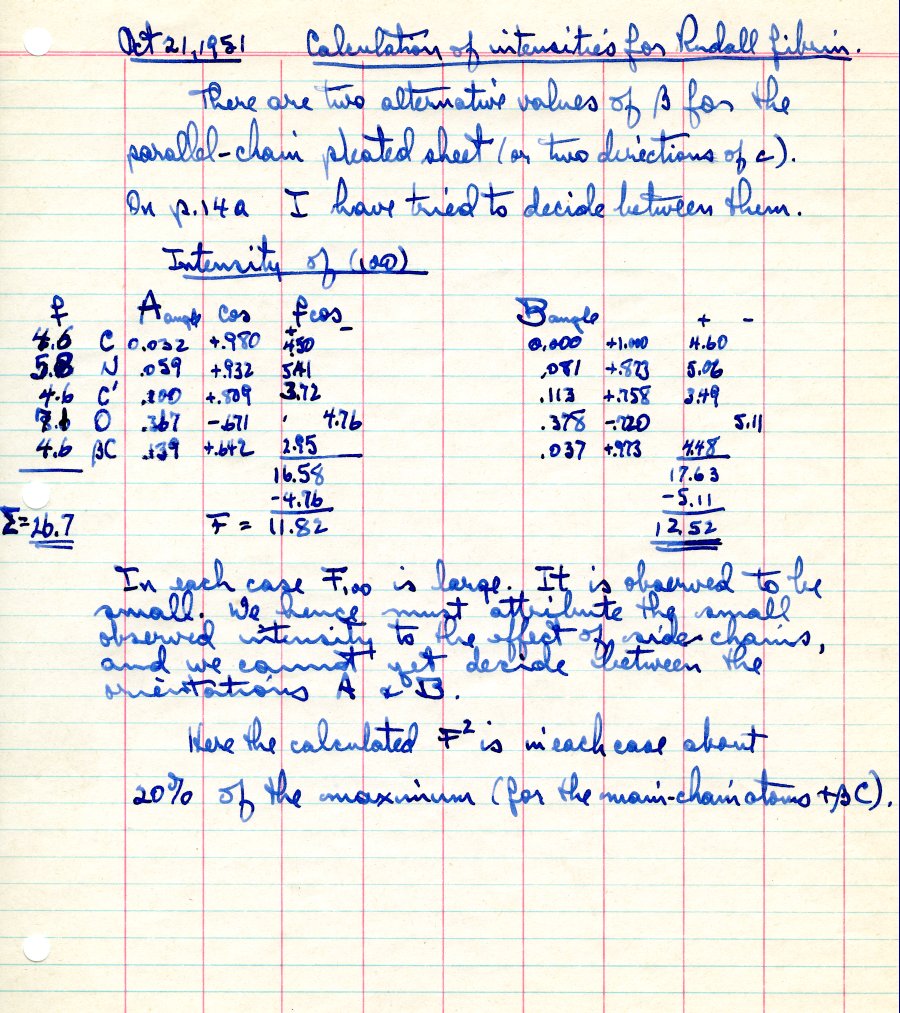 Oct 21, 1951 Calculation of intensities for Rudall fibrin.
There are two alternative values of β for the
parallel-chain pleated sheet (or two directions of c).
On p. 14a I have tried to decide between them.
Intensity of (100)
f A angle cos f cos B angle + -
+ -
4.6 C 0.032 +.980 4.50 0.000 +1.000 4.60
5.8 N .059 +.932 5.41 .081 +.873 5.06
4.6 C' .100 +.809 3.72 .113 +.758 3.49
7.1 O .367 -.671 4.76 .378 -.720 5.11
4.6 βC .139 +.642 2.95 .037 +.973 4.48
16.58 17.63
-4.76 -5.11
Σ=26.7 F = 11.82 12.52
In each case F100 is large. It is observed to be
small. We hence must attribute the small
observed intensity to the effect of side chains,
and we cannot yet decide between the
orientations A & B.
Here the calculated F² is in each case about
20% of the maximum (for the main-chain atoms + βC).